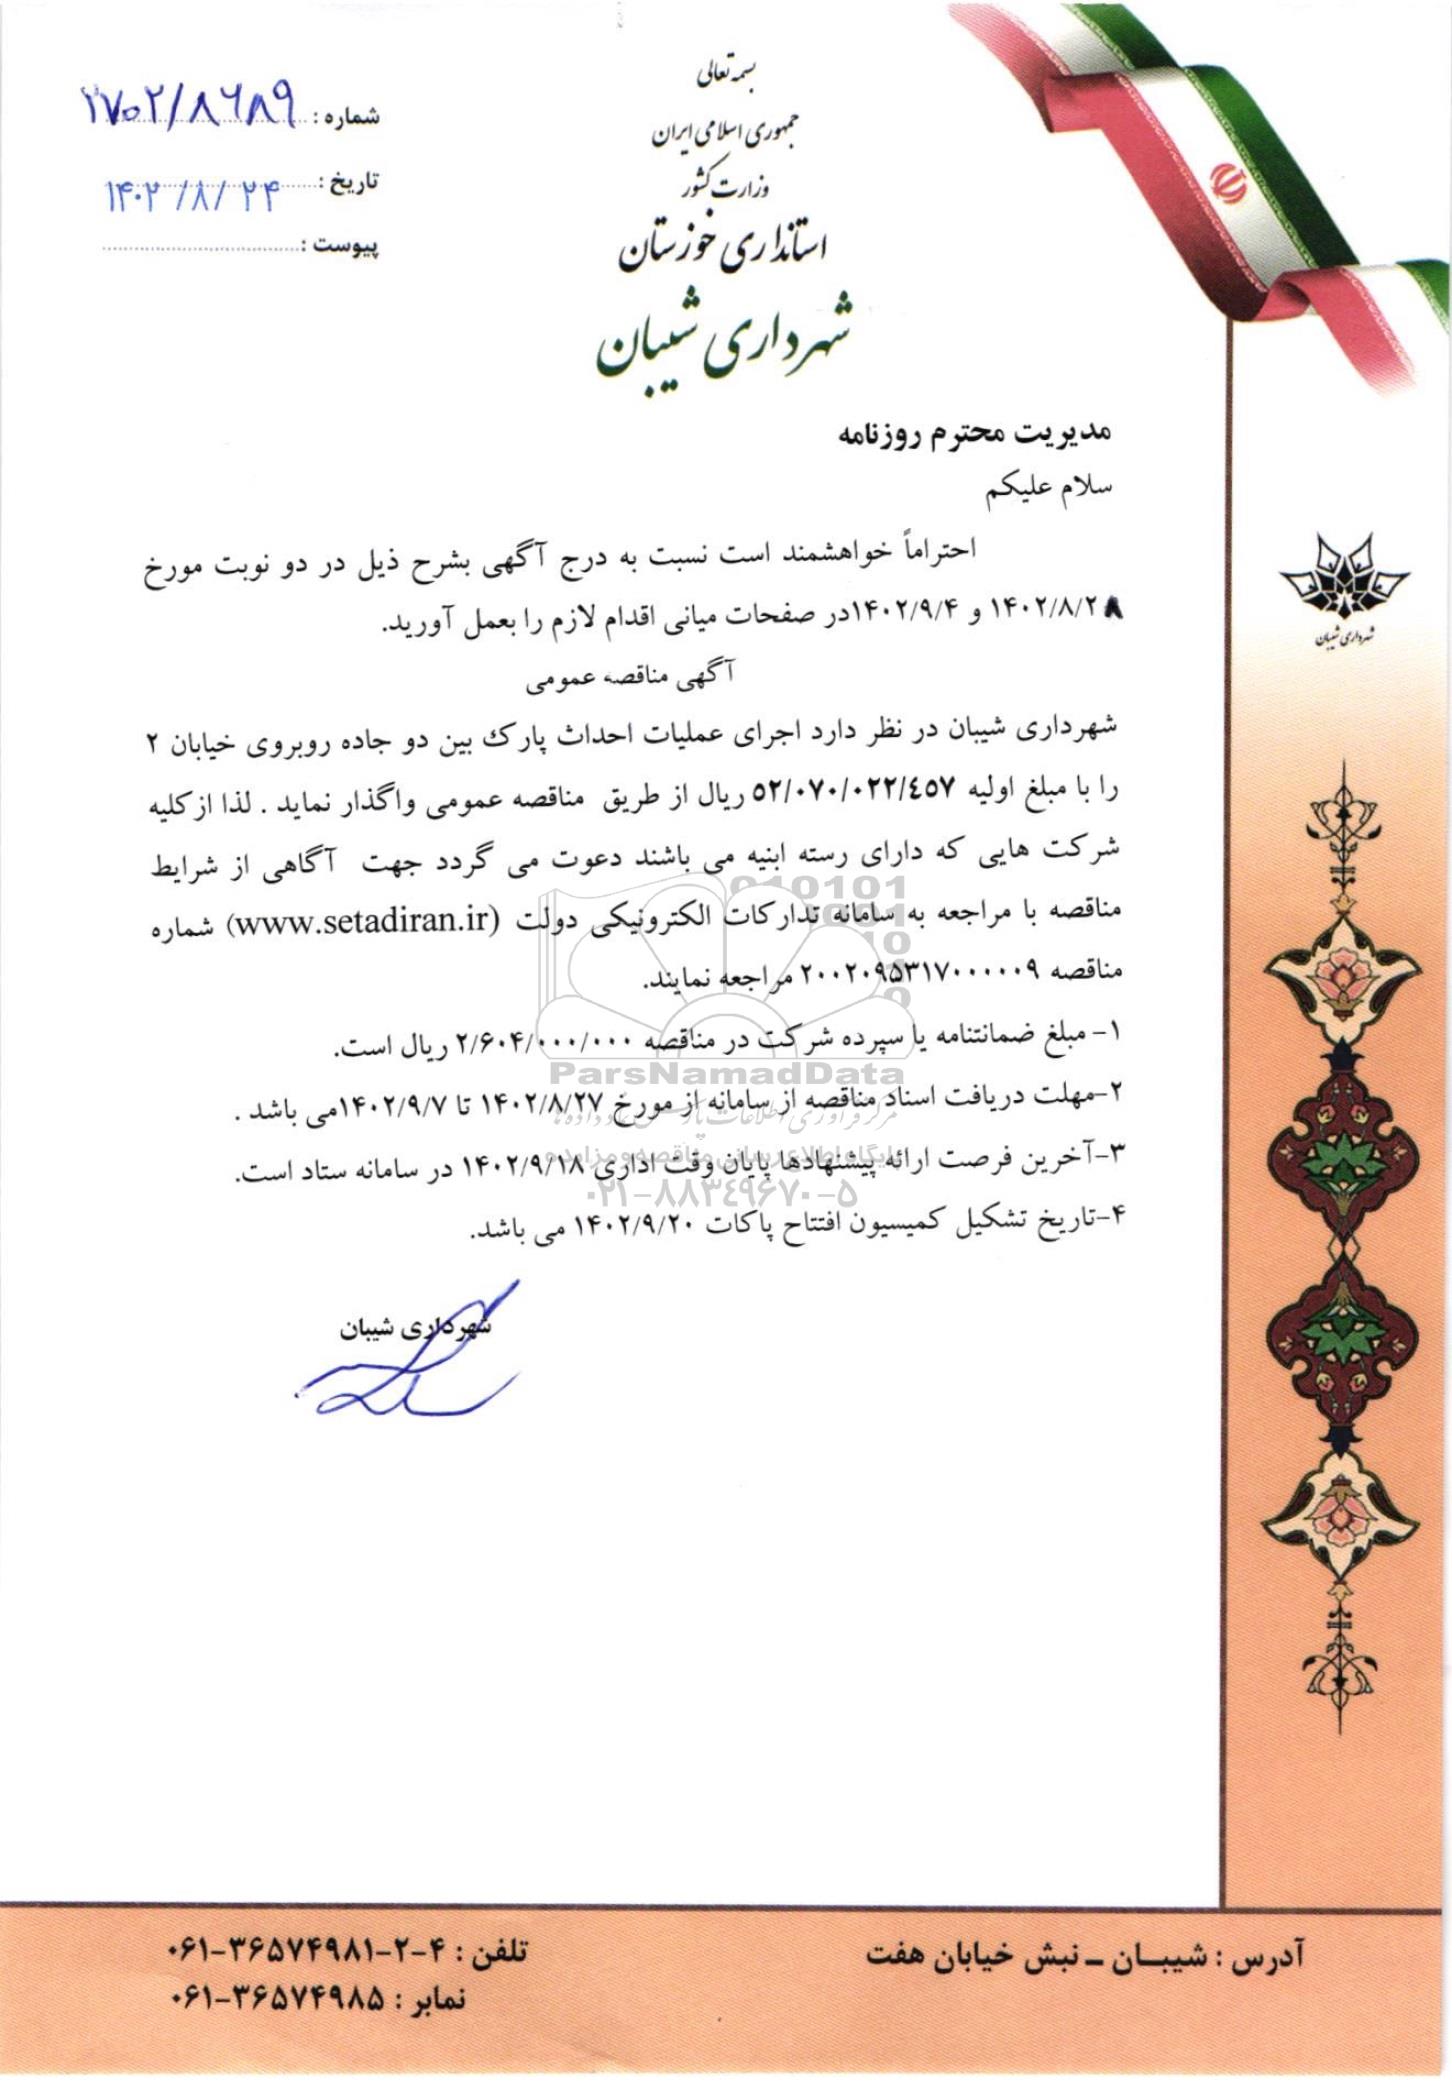 بسمه تعالی
جمهوری اسلامی ایران
وزارت کشور
استانداری خوزستان
شهرداری شیبان
شماره : ۲۷۰۲/۸۶۸۹
تاریخ : ۱۴۰۲/۸/۲۴
پیوست :
شهرداری شیبان
مدیریت محترم روزنامه
سلام علیکم
احتراماً خواهشمند است نسبت به درج آگهی بشرح ذیل در دو نوبت مورخ
۱۴۰۲/۸/۲۸ و ۱۴۰۲/۹/۴در صفحات میانی اقدام لازم را بعمل آورید.
آگهی مناقصه عمومی
شهرداری شیبان در نظر دارد اجرای عملیات احداث پارک بین دو جاده روبروی خیابان ۲
را با مبلغ اولیه ۵۲/۰۷۰/۰۲۲/٤۵۷ ریال از طریق مناقصه عمومی واگذار نماید . لذا از کلیه
شرکت هایی که دارای رسته ابنیه می باشند دعوت می گردد جهت آگاهی از شرایط
مناقصه با مراجعه به سامانه تدارکات الکترونیکی دولت (www.setadiran.ir) شماره
مناقصه ۲۰۰۲۰۹۵۳۱۷۰۰۰۰۰۹ مراجعه نمایند.
۱- مبلغ ضمانتنامه یا سپرده شرکت در مناقصه ۲/۶۰۴/۰۰۰/۰۰۰ ریال است.
۲-مهلت دریافت اسناد مناقصه از سامانه از مورخ ۱۴۰۲/۸/۲۷ تا ۱۴۰۲/۹/۷می باشد .
۳-آخرین فرصت ارائه پیشنهادها پایان وقت اداری ۱۴۰۲/۹/۱۸ در سامانه ستاد است.
۴-تاریخ تشکیل کمیسیون افتتاح پاکات ۱۴۰۲/۹/۲۰ می باشد.
شهرداری شیبان
ParsNamadData
پایگاه اطلاع رسانی مناقصه و مزایده
۰۲۱-۸۸۳۴۹۶۷۰-۵
آدرس : شیبان - نبش خیابان هفت
تلفن : ۴-۲-۳۶۵۷۴۹۸۱-۰۶۱
نمابر : ۳۶۵۷۴۹۸۵-۰۶۱